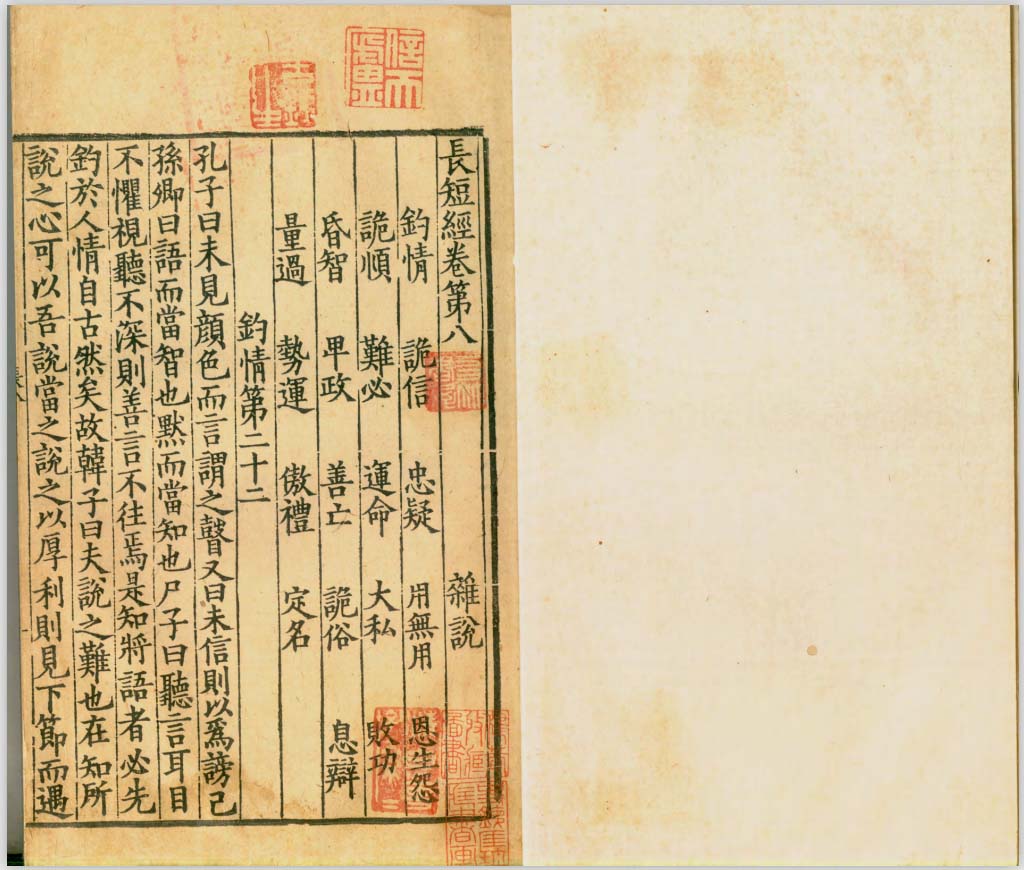 長短經卷第八 雜說
釣情 詭信 忠疑 用無用 恩生怨
詭順 難必 運命 大私 敗功
昏智 卑政 善亡 詭俗 息辯
量過 勢運 傲禮 定名
釣情第二十二
孔子曰未見顔色而言謂之瞽又曰未信則以爲謗己
孫卿曰語而當智也默而當知也尸子曰聽言耳目
不懼視聽不深則善言不往焉是知將語者必先
釣於人情自古然矣故韓子曰夫說之難也在知所
說之心可以吾說當之說之以厚利則見下節而遇